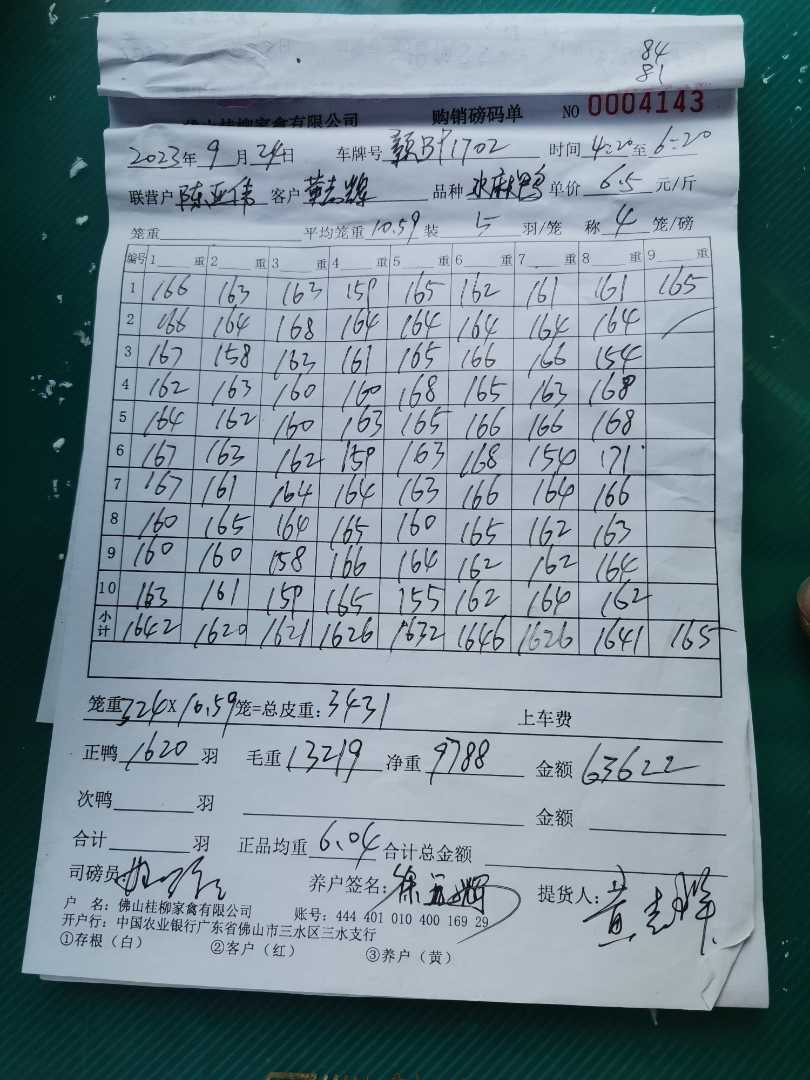 84
81
佛山桂柳家禽有限公司 购销磅码单 NO 0004143
2023年 9 月 24日 车牌号 1702 时间 4:20 至 6:20
联营户 陈亚伟 客户 黄志辉 品种 水麻鸭 单价 6.5 元/斤
笼重 平均笼重 10.59 装 5 羽/笼 称 4 笼/磅
编号 1 重 2 重 3 重 4 重 5 重 6 重 7 重 8 重 9 重
1 166 163 163 159 165 162 161 161 165
2 166 164 168 164 164 164 164 164
3 167 158 163 161 165 166 166 154
4 162 163 160 160 168 165 163 168
5 164 162 160 163 165 166 166 168
6 167 163 162 159 163 168 154 171
7 167 161 164 164 163 166 164 166
8 160 165 164 165 160 165 162 163
9 160 160 158 166 164 162 162 164
10 163 161 159 165 155 162 164 162
小计 1642 1620 1621 1626 1632 1646 1626 1641 165
笼重 324 X 10.59 笼=总皮重: 3431 上车费
正鸭 1620 羽 毛重 13219 净重 9788 金额 63622
次鸭 羽 金额
合计 羽 正品均重 6.04 合计总金额
司磅员 养户签名: 提货人: 黄志辉
户 名: 佛山桂柳家禽有限公司 账号: 444 401 010 400 169 29
开户行: 中国农业银行广东省佛山市三水区三水支行
①存根（白） ②客户（红） ③养户（黄）